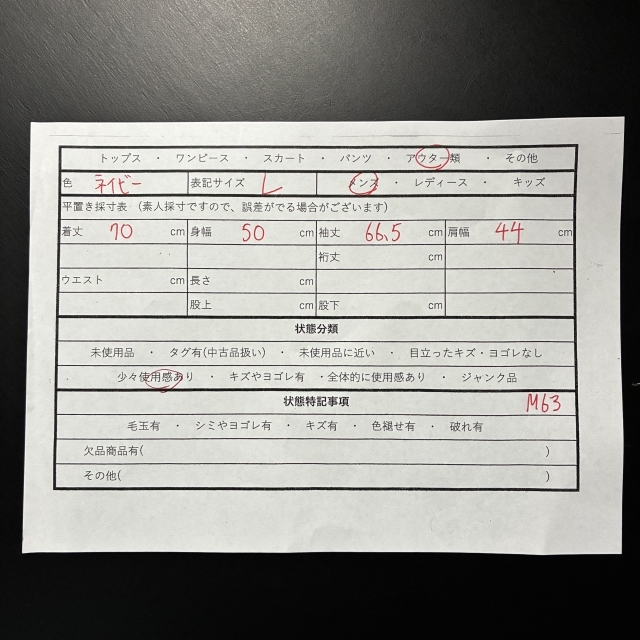 トップス ・ ワンピース ・ スカート ・ パンツ ・ アウター類 ・ その他
色 ネイビー 表記サイズ L メンズ ・ レディース ・ キッズ
平置き採寸表 (素人採寸ですので、誤差がでる場合がございます)
着丈 70 cm 身幅 50 cm 袖丈 66.5 cm 肩幅 44 cm
裄丈 cm
ウエスト cm 長さ cm
股上 cm 股下 cm
状態分類
未使用品 ・ タグ有(中古品扱い) ・ 未使用品に近い ・ 目立ったキズ・ヨゴレなし
少々使用感あり ・ キズやヨゴレ有 ・全体的に使用感あり ・ ジャンク品
状態特記事項 M63
毛玉有 ・ シミやヨゴレ有 ・ キズ有 ・ 色褪せ有 ・ 破れ有
欠品商品有( )
その他( )